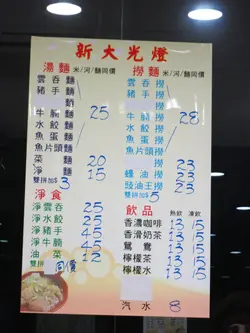 新大光燈
湯麵 米/河/麵同價
雲吞麵
豬手麵
牛腩麵 25
水餃麵
魚蛋麵
魚片頭麵
菜麵 20
淨麵 15
雙拼加 3
淨食
淨雲吞 25
淨水餃 25
淨豬手 45
淨牛腩 45
油菜 12
同價
撈麵 米/河/麵同價
雲吞撈
豬手撈
牛腩撈 28
水餃撈
魚蛋撈
魚片頭撈
菜撈 23
蠔油撈 23
豉油王撈 23
雙拼加 5
飲品 熱飲 凍飲
香濃咖啡 13 15
香滑奶茶 13 15
鴛鴦 13 15
檸檬茶 13 15
檸檬水 13 15
汽水 8